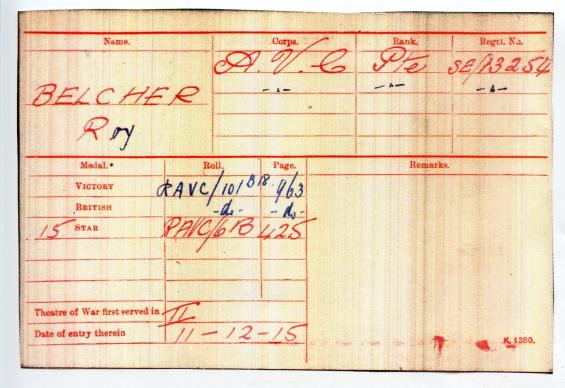 Name. Corps. Rank. Regtl. No.
BELCHER A.V.C Pte SE/13254
Roy -"- -"- -"-
Medal.* Roll. Page. Remarks.
VICTORY RAVC/101 B18. 9/63
BRITISH -do- -do-
15 STAR RAVC/6B 425
Theatre of War first served in II
Date of entry therein 11-12-15
K. 1380.